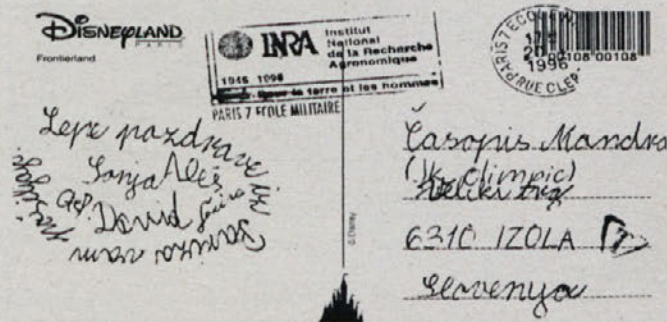 DISNEYLAND
PARIS
Frontierland
INRA
Institut
National
de la Recherche
Agronomique
1946 1996
pour la terre et les hommes
PARIS 7 ECOLE MILITAIRE
PARIS 7 ECOLE M
20
1996
RUE CLER
00108 00108
Lepe pozdrave iz
Pariza vam
Sonja Aleš
David
© Disney
Časopis Mandra
(JK Olimpic)
Veliki trg
6310 IZOLA
Slovenija